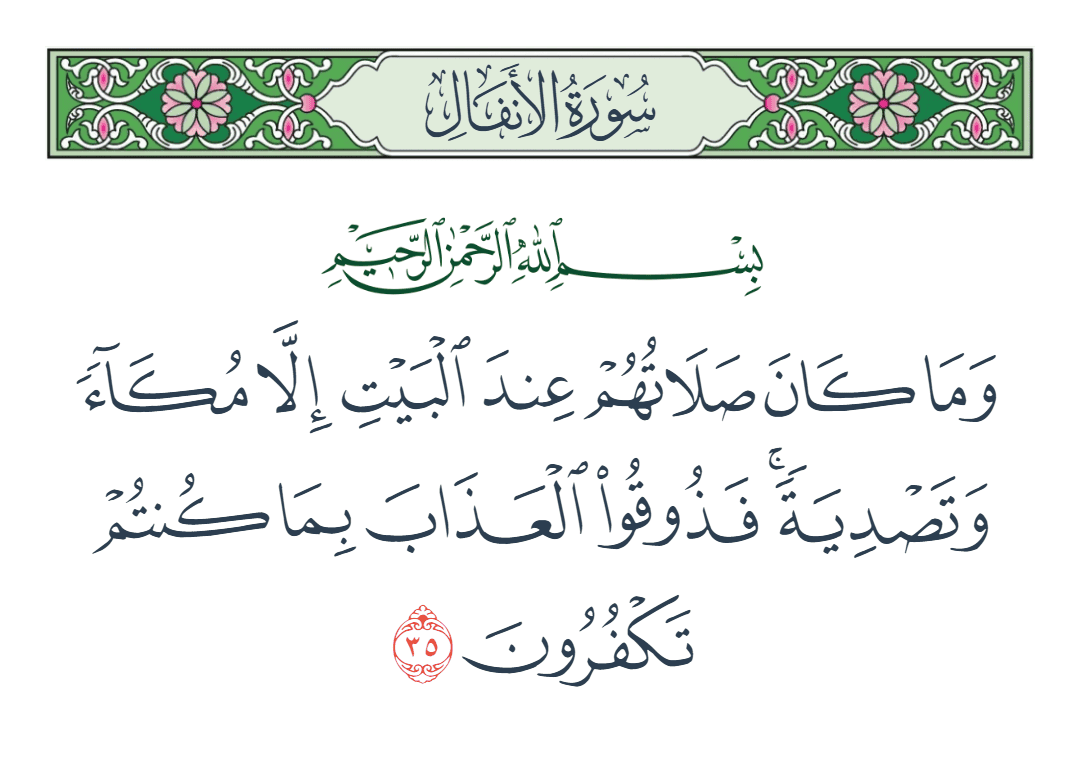 سُورَةُ الأَنفَالِ
بِسْمِ ٱللَّهِ ٱلرَّحْمَٰنِ ٱلرَّحِيمِ
وَمَا كَانَ صَلَاتُهُمْ عِندَ ٱلْبَيْتِ إِلَّا مُكَآءً
وَتَصْدِيَةً ۚ فَذُوقُوا۟ ٱلْعَذَابَ بِمَا كُنتُمْ
تَكْفُرُونَ ٣٥